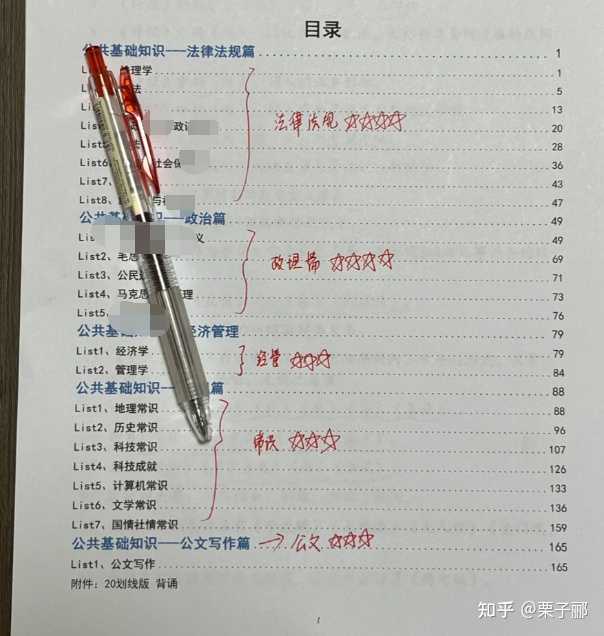 目录
公共基础知识---法律法规篇 1
List 理学 1
List 法 5
List 13
List 政 20
List 法 28
List6 社会保 36
List7、 43
List8、 与 47
公共基础知识---政治篇 49
Lis 义 49
List2、毛思 69
List3、公民道 71
List4、马克思 理 73
List5、 76
公共基 经济管理 79
List1、经济学 79
List2、管理学 84
公共基础知识--- 篇 88
List1、地理常识 88
List2、历史常识 96
List3、科技常识 107
List4、科技成就 126
List5、计算机常识 133
List6、文学常识 136
List7、国情社情常识 159
公共基础知识---公文写作篇 165
List1、公文写作 165
附件：20划线版 背诵
法律法规 ☆☆☆☆
政理篇 ☆☆☆☆
经管 ☆☆☆
常识 ☆☆☆
→公文 ☆☆☆
1
知乎 @栗子郦